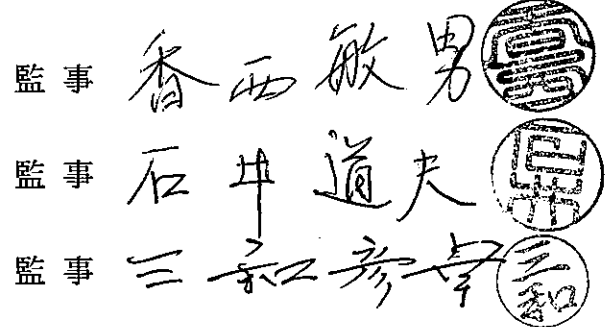 監事 香西敏男
監事 石井道夫
監事 三和彦幸
三和